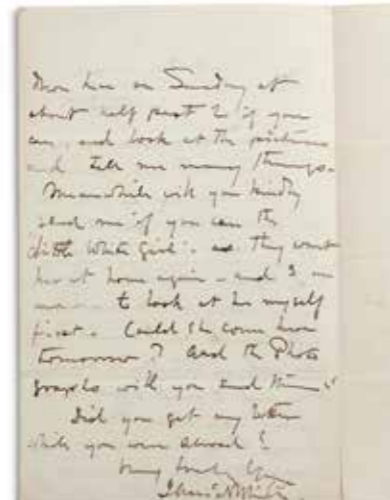 here on Sunday at
about half past 2 if you
can, and look at the pictures
and tell me many things.
Meanwhile will you kindly
send me if you can the
Little White Girl. as they want
her at home again - and I am
to look at her myself
first. Could she come here
tomorrow? And the Photo
graphs will you send them?
Did you get my letter
while you were abroad?
Very truly Yours